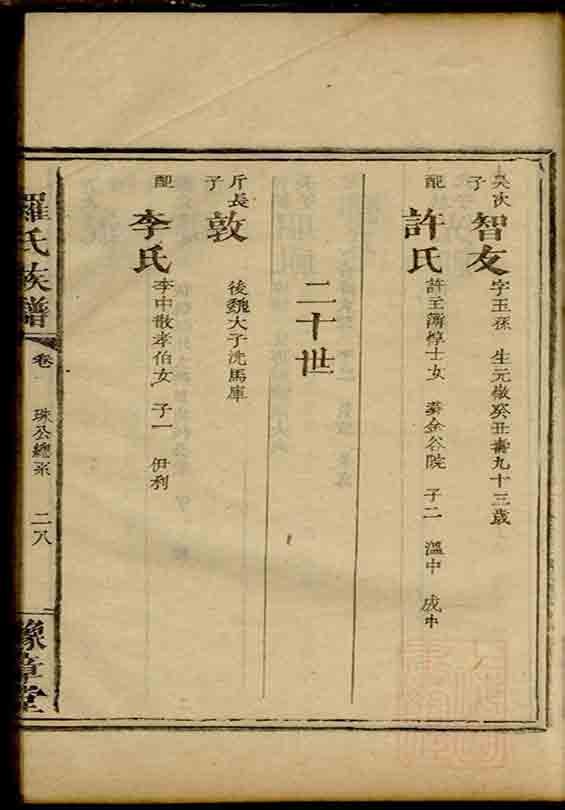 吳次子 智友 字玉孫 生元徽癸丑壽九十三歲
配 許氏 許主簿惇士女 葬金谷院 子二 溫中 成中
二十世
斤長子 敦 後魏大子洗馬庫
配 李氏 李中散孝伯女 子一 伊利
羅氏族譜 卷一 珠公總系 二八 豫章堂